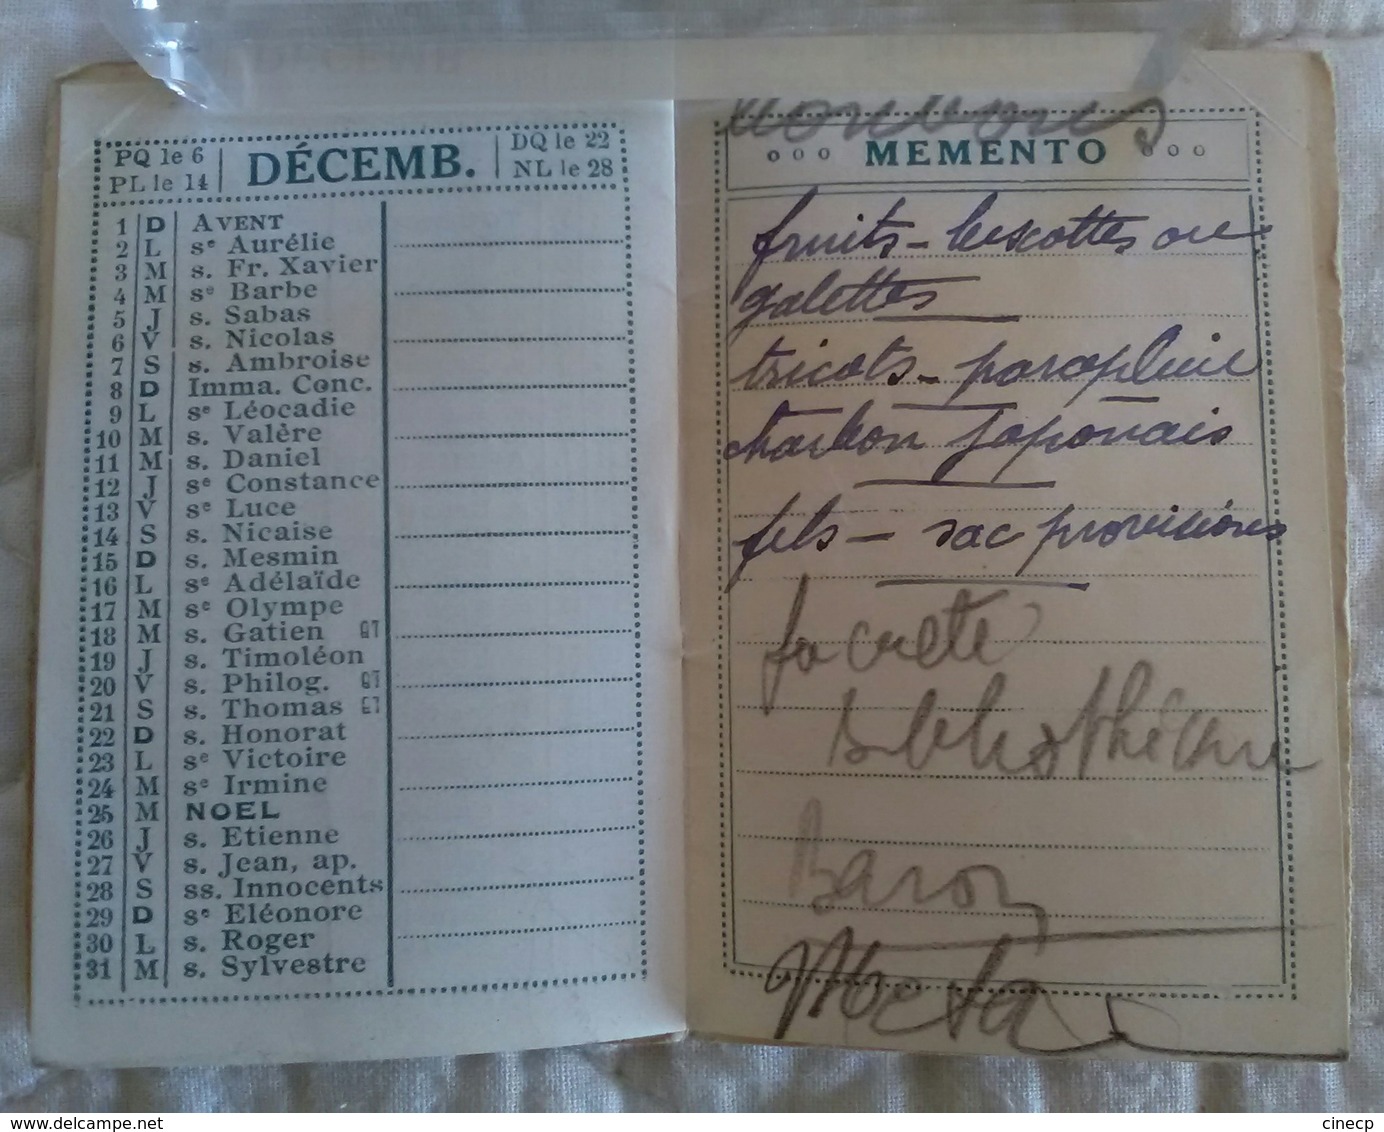 PQ le 6
PL le 14
DÉCEMB.
DQ le 22
NL le 28
1 D AVENT
2 L se Aurélie
3 M s. Fr. Xavier
4 M se Barbe
5 J s. Sabas
6 V s. Nicolas
7 S s. Ambroise
8 D Imma. Conc.
9 L se Léocadie
10 M s. Valère
11 M s. Daniel
12 J se Constance
13 V se Luce
14 S s. Nicaise
15 D s. Mesmin
16 L se Adélaïde
17 M se Olympe
18 M s. Gatien QT
19 J s. Timoléon
20 V s. Philog. QT
21 S s. Thomas QT
22 D s. Honorat
23 L se Victoire
24 M se Irmine
25 M NOEL
26 J s. Etienne
27 V s. Jean, ap.
28 S ss. Innocents
29 D se Eléonore
30 L s. Roger
31 M s. Sylvestre
MEMENTO
fruits - biscottes ou
galettes
tricots - parapluie
charbon japonais
fils - sac provisions
Baron
cinecp